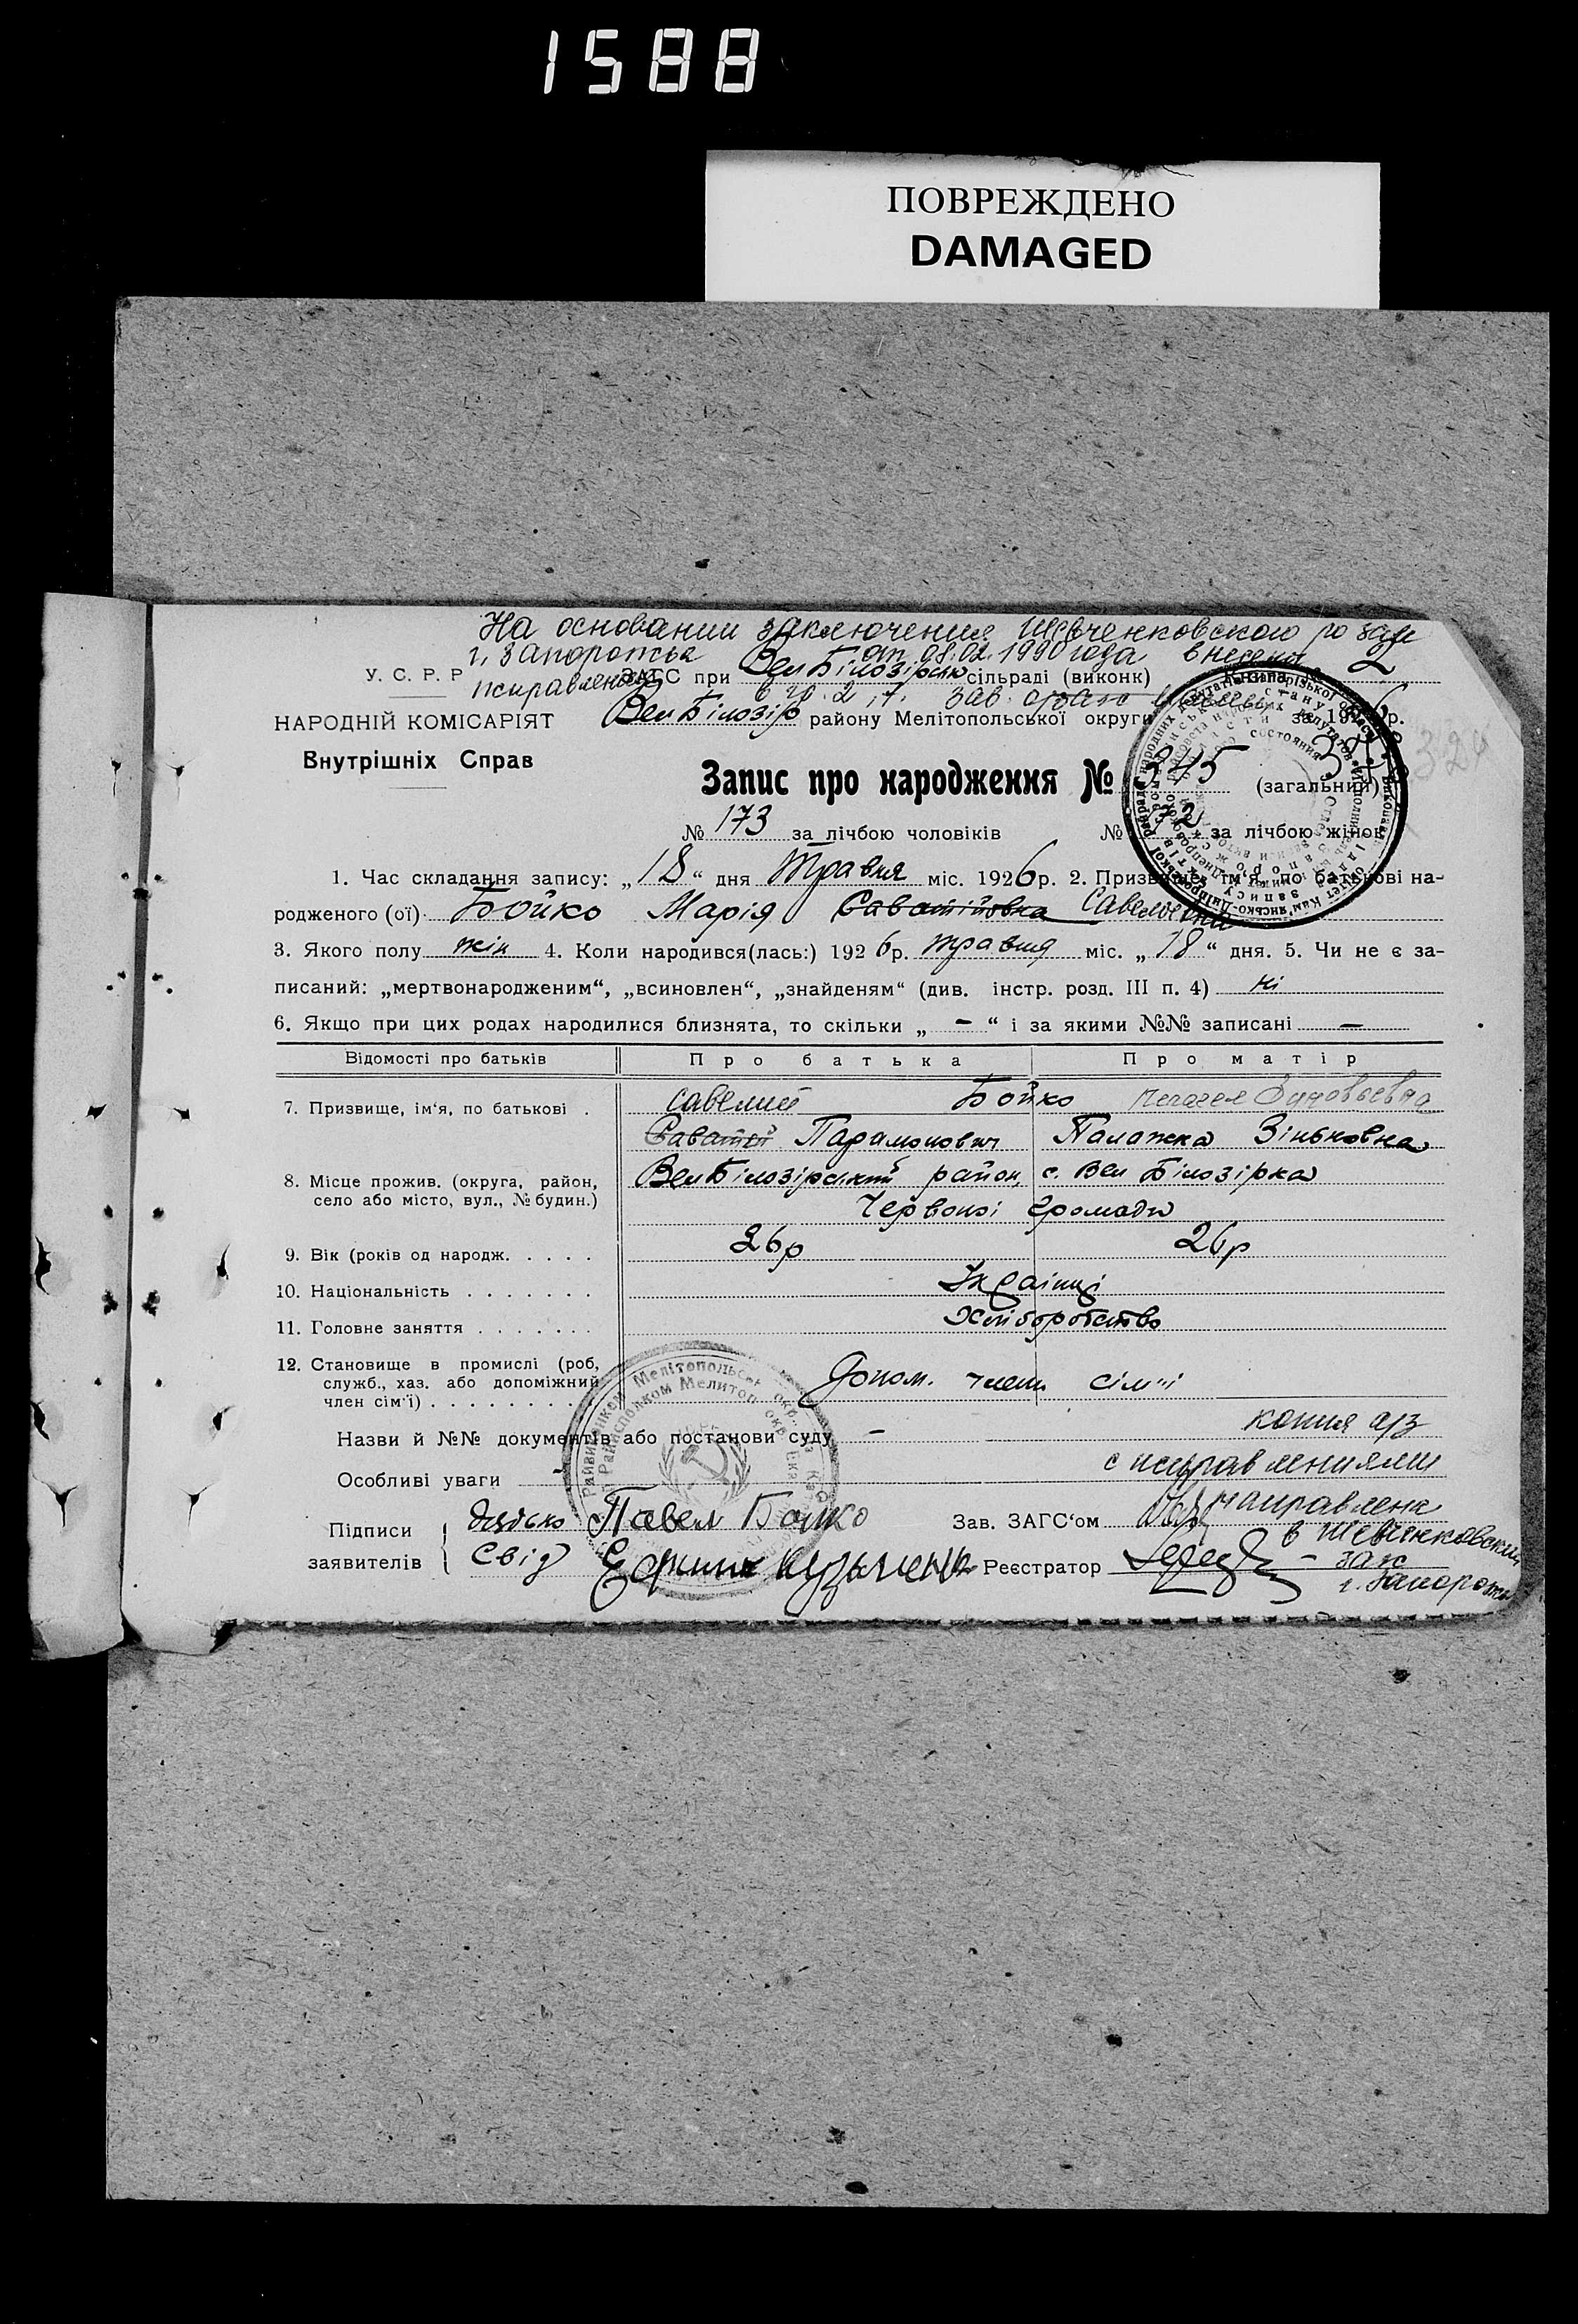 1588
ПОВРЕЖДЕНО
DAMAGED
На основании заключения Шевченковского ро загс
г. Запорожья от 08.02.1990 года внесены 2
У. С. Р. Р. исправления ЗАГС при Вел Білозірськ сільраді (виконк)
в гр. 2, 7. Зав.
НАРОДНІЙ КОМІСАРІЯТ Вел Білозір району Мелітопольської округи за 1926 р.
Внутрішніх Справ
Запис про народження № 345 (загальний)
324
№ 173 за лічбою чоловіків № за лічбою жінок
1. Час складання запису: „18“ дня Травня міс. 1926 р. 2. Призвище, ім‘я, по батькові на-
родженого (ої) Бойко Марія Саватіївна Савельевна
3. Якого полу жін 4. Коли народився(лась:) 1926 р. травня міс. „18“ дня. 5. Чи не є за-
писаний: „мертвонародженим“, „всиновлен“, „знайденям“ (див. інстр. розд. III п. 4) ні
6. Якщо при цих родах народилися близнята, то скільки „ – “ і за якими №№ записані —
Відомості про батьків Про батька Про матір
7. Призвище, ім‘я, по батькові . Савелий Бойко
Саватей Парамонович Палажка Зіньковна
8. Місце прожив. (округа, район, Вел Білозірський район, с. Вел Білозірка
село або місто, вул., № будин.)
Червоної Громади
9. Вік (років од народж. . . . . 26 р 26 р
10. Національність . . . . . . . Українці
11. Головне заняття . . . . . . . Хліборобство
12. Становище в промислі (роб,
служб., хаз. або допоміжний Допом. члени сім'ї
член сім‘ї) . . . . . . . .
Назви й №№ документів або постанови суду – копия а/з
Особливі уваги с исправлениями
Підписи дядько Павел Бойко Зав. ЗАГС‘ом направлена
заявителів Свід Реєстратор в Шевченковский
загс
г. Запорожье